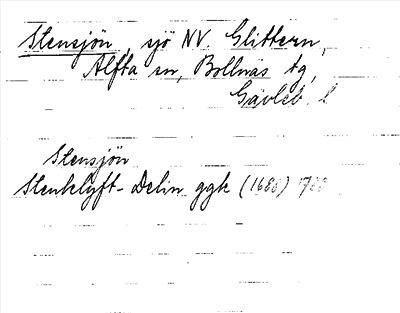 Stensjön, sjö NV. Glittern,
Alfta sn, Bollnäs tg,
Gävleb. l
Stensjön
Stenklyft-Delin ggk (1688)